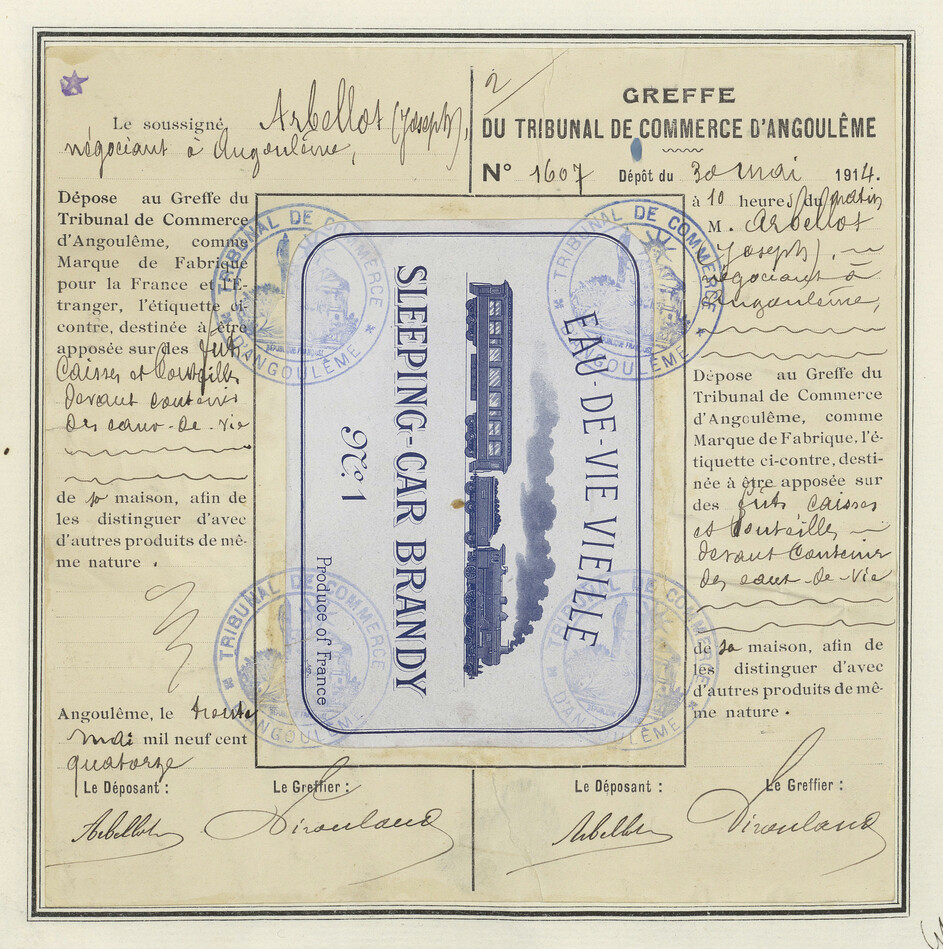 Le soussigné, Arbellot (Joseph),
négociant à Angoulême,
Dépose au Greffe du
Tribunal de Commerce
d'Angoulême, comme
Marque de Fabrique
pour la France et l'É-
tranger, l'étiquette ci-
contre, destinée à être
apposée sur des futs
Caisses et Bouteilles
devant contenir
des eaux-de-vie
de sa maison, afin de
les distinguer d'avec
d'autres produits de mê-
me nature.
Angoulême, le trente
mai mil neuf cent
quatorze
Le Déposant :
Le Greffier :
Arbellot
EAU-DE-VIE VIEILLE
SLEEPING-CAR BRANDY
No. 1
Produce of France
TRIBUNAL DE COMMERCE
D'ANGOULÊME
RÉPUBLIQUE FRANÇAISE
TRIBUNAL DE COMMERCE
D'ANGOULÊME
RÉPUBLIQUE FRANÇAISE
TRIBUNAL DE COMMERCE
D'ANGOULÊME
TRIBUNAL DE COMMERCE
D'ANGOULÊME
2
GREFFE
DU TRIBUNAL DE COMMERCE D'ANGOULÊME
N° 1607 Dépôt du 30 mai 1914.
à 10 heures du matin
M. Arbellot
Joseph),
négociant à
Angoulême,
Dépose au Greffe du
Tribunal de Commerce
d'Angoulême, comme
Marque de Fabrique, l'é-
tiquette ci-contre, desti-
née à être apposée sur
des futs caisses
et bouteilles
devant contenir
des eaux-de-vie
de sa maison, afin de
les distinguer d'avec
d'autres produits de mê-
me nature.
Le Déposant :
Le Greffier :
Arbellot